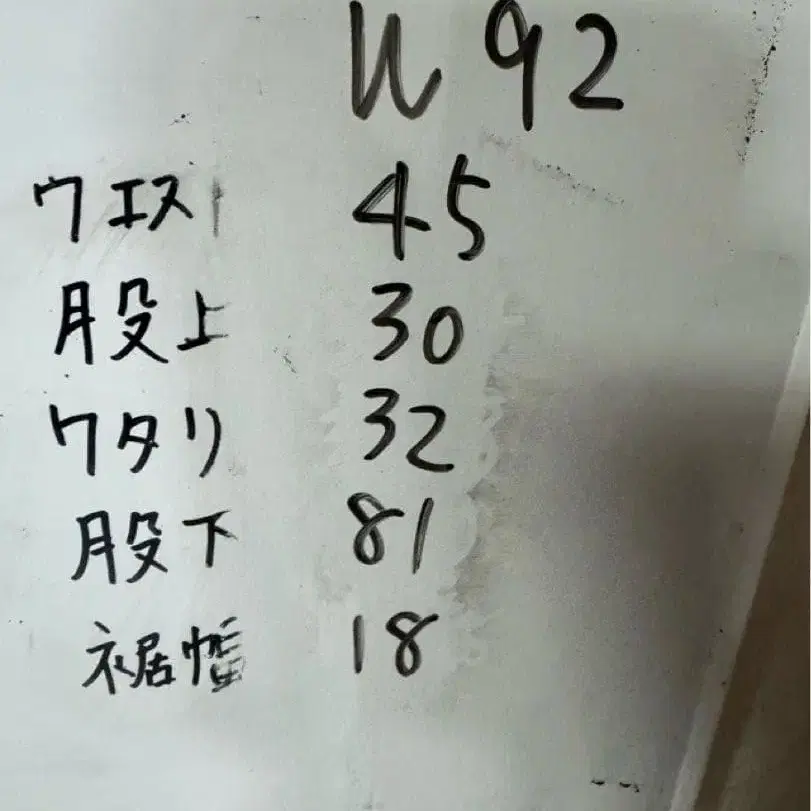 W 92
ウエスト 45
股上 30
ワタリ 32
股下 81
裾幅 18